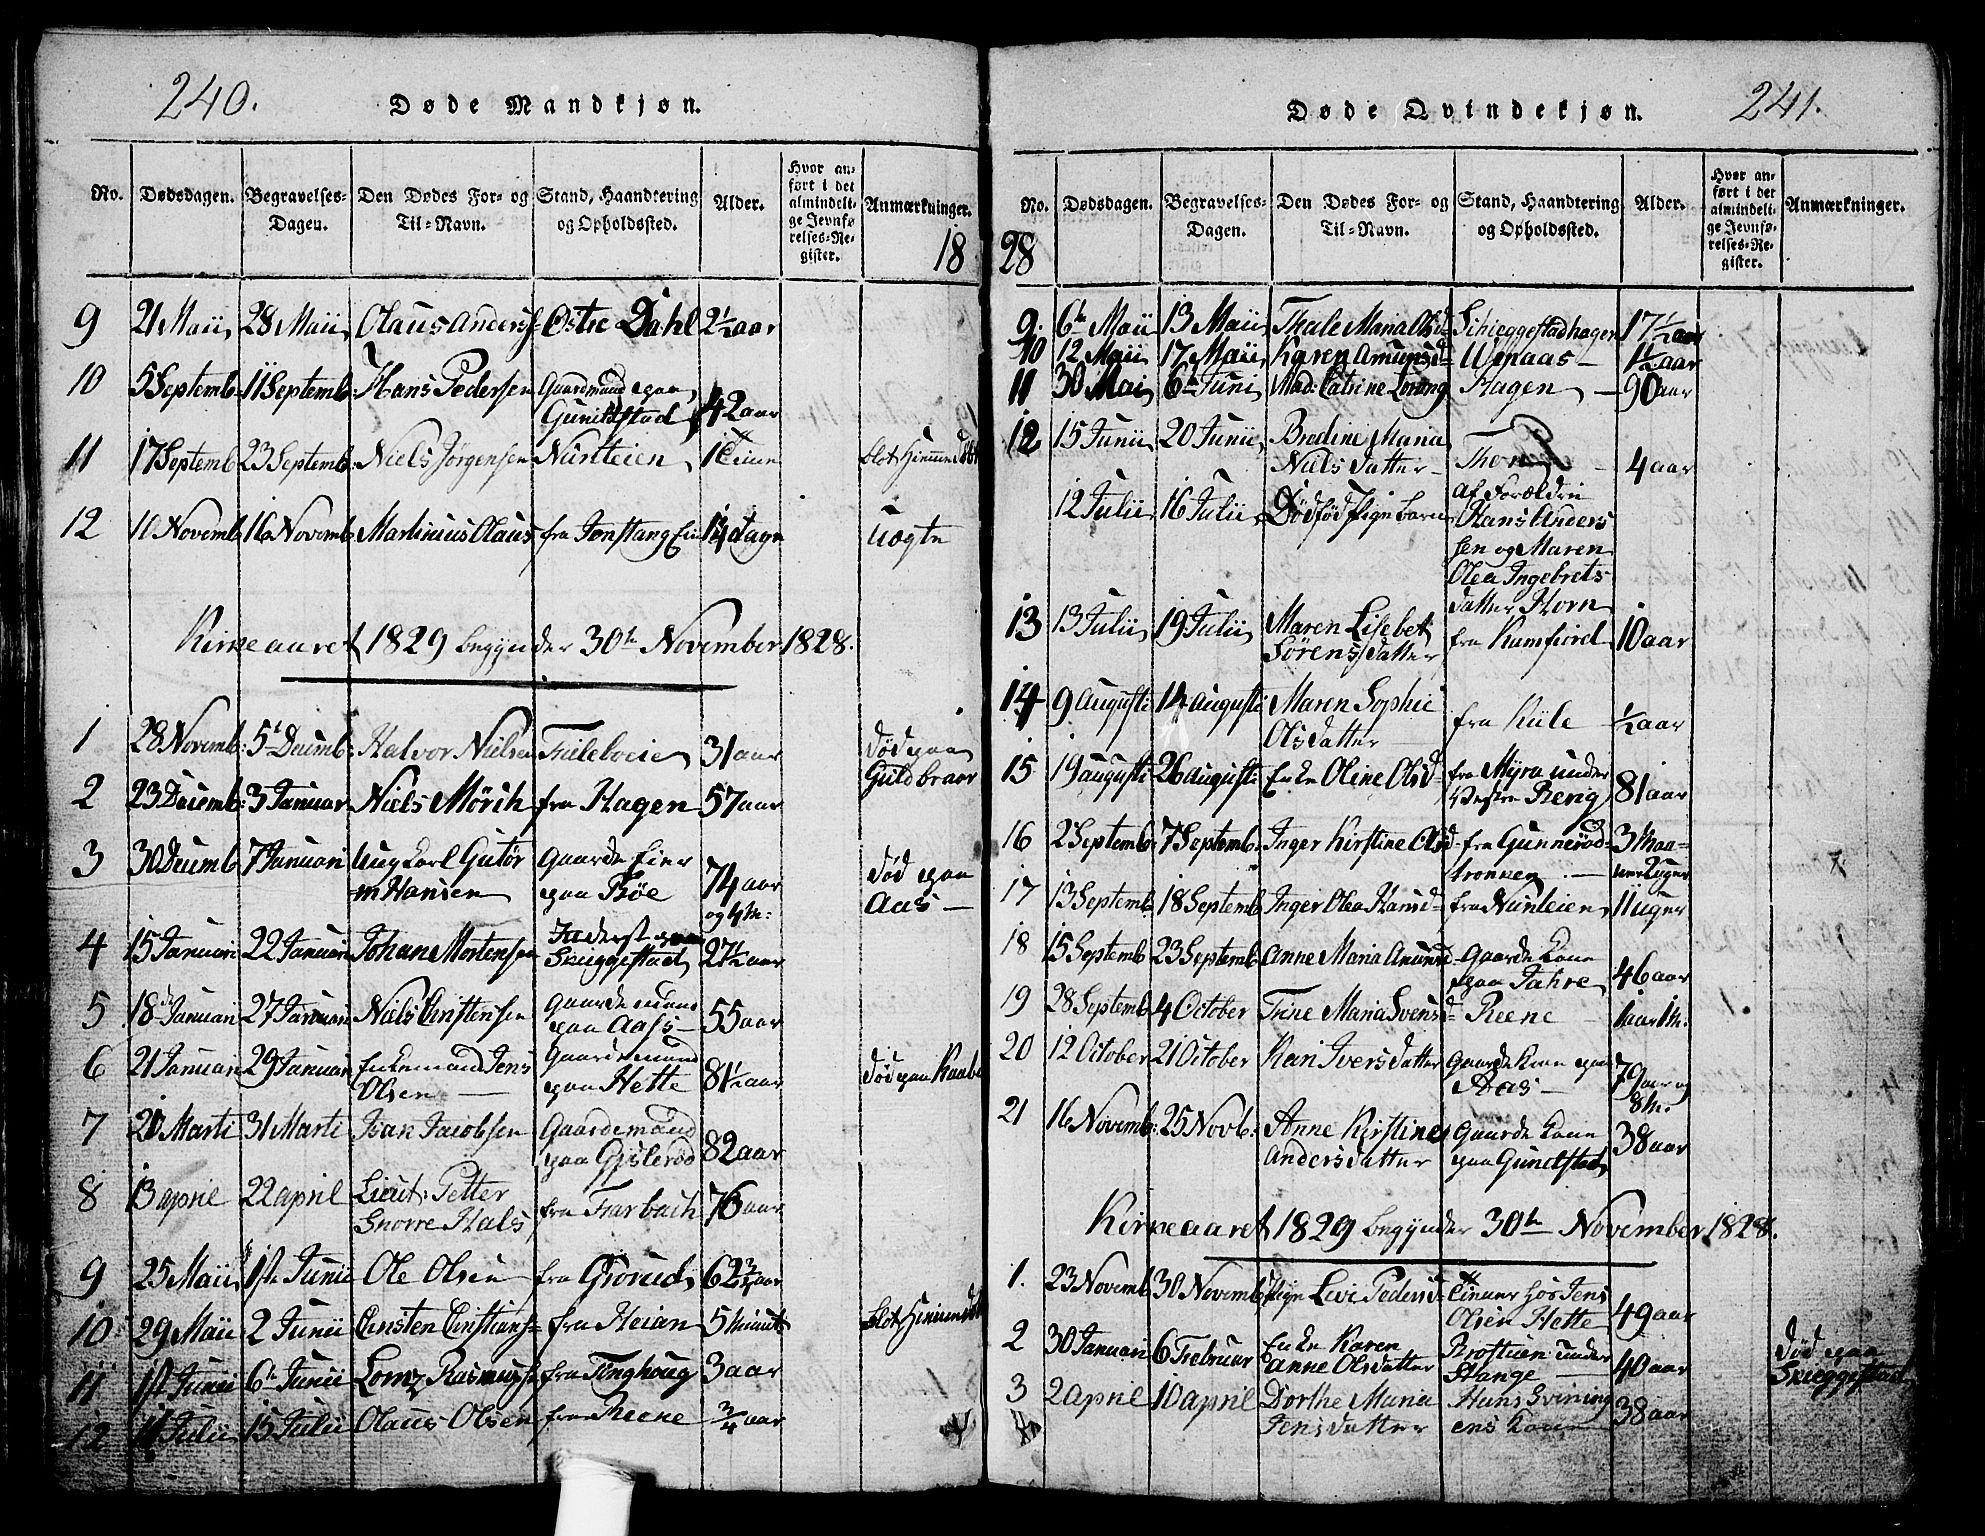 240.
Døde Mandkjøn.
No. Dødsdagen. Begravelses-Dagen. Den Dødes For- og Til-Navn. Stand, Haandtering og Opholdssted. Alder. Hvor anført i det almindelige Jevnførelses-Register. Anmærkninger.
18
9 21 Maii 28 Maii Olaus Anders- Østre Dahl 2½ aar
10 5 Septemb. 11 Septemb. Hans Pedersen Gaardmand paa
Gundestad 42 aar
11 17 Septemb. 23 Septemb. Niels Jørgensen Nusteien 1 Time blot hjemmedøbt
12 11 Novemb. 16 Novemb. Martinius Olaus fra Jonstang Eie 14 dage uægte
Kirkeaaret 1829 begynder 30te November 1828.
1 28 Novemb: 5te Decemb: Halvor Nielsen 31 aar død paa
Guldkraar
2 23 Decemb: 3 Januar Niels Mörch fra Hagen 57 aar
3 30 Decemb 7 Januari Ungkarl Gutor
m Hansen
Gaarde Eier
paa Bøe 74 aar
og 4 M:
død paa
Aas
4 15 Januari 22 Januari Johan Mortensen Inderst paa
Skieggestad 27½ aar
5 18de Januari 27 Januari Niels Christensen Gaardemand
paa Aass 55 aar
6 21 Januari 29 Januari Enkemand Jens
Olsen
Gaardemand
paa Hette 81½ aar død paa Raabe
7 20 Marti 31 Marti Isak Jacobsen Gaardemand
paa Gislerød 82 aar
8 13 april 22 april Lieut: Petter
Snorre Hals
fra Farbach 76 aar
9 25 Maii 1ste Junii Ole Olsen fra Grorud 62¾ aar
10 29 Maii 2 Junii Christen Christians- fra Heian 5 Minut blot hjemmedøbt
11 1ste Junii 6te Junii Lorentz Rasmus- fra Tonghoug 3 aar
12 11 Julii 15 Julii Olaus Olsen fra Reene ¾ aar
241.
Døde Qvindekjøn.
No. Dødsdagen. Begravelses-Dagen. Den Dødes For- og Til-Navn. Stand, Haandtering og Opholdssted. Alder. Hvor anført i det almindelige Jevnførelses-Register. Anmærkninger.
28
9. 6te Maii 13 Maii Thale Maria Olsd- Schieggestadhagen 17½ aar
10 12 Maii 17 Maii Karen Amunsd- Wenaas 1½ aar
11 30 Mai 6te Juni Mad: Catrine Lorang Hagen 90 aar
12 15 Junii 20 Junii Brødine Maria
Niels Datter
4 aar
12 Julii 16 Julii Dødfød Pigebarn af Forældre
Hans Anders
sen og Maren
Olea Ingebrets
datter Horn
13 13 Julii 19 Julii Maren Lisebet
Sørens datter
fra Rumfiord 10 aar
14 9 Augusti 14 augusti Maren Sophie
Olsdatter
fra Kiile ½ aar
15 19 augusti 26 augusti Enke Oline Olsd- fra Myra under
Vestre Reng 81 aar
16 2 Septemb. 7 Septemb. Inger Kirstine Olsd- fra Gunnerød-
tronnen 3 Maa-
neder 2 uger
17 13 Septemb. 18 Septemb. Inger Olea Hansd- fra Nusteien 11 uger
18 15 Septemb 23 Septemb. Anne Maria Amund- Gaarde Kone
paa Jahre 46 aar
19 28 Septemb 4 October Trine Maria Svensd- Reene 1 aar 1 M.
20 12 October 21 October Kari Ivers datter Gaarde Kone paa
Aas 79 aar og
8 M.
21 16 Novemb: 25 Novb: Anne Kirstine
Andersdatter
Gaarde Kone
paa Gundestad 38 aar
Kirkeaaret 1829 begynder 30te November 1828.
1. 23 Novemb 30 Novemb Pige Levi Pedersd- tiener hos Jens
Olsen Hette 49 aar
2 30 Januari 6 Februar Enke Karen
Anne Olsdatter
under
Stange 40 aar
død paa
Skieggestad
3 2 april 10 april Dorthe Maria
Jensdatter
Hans
ens Kone 38 aar